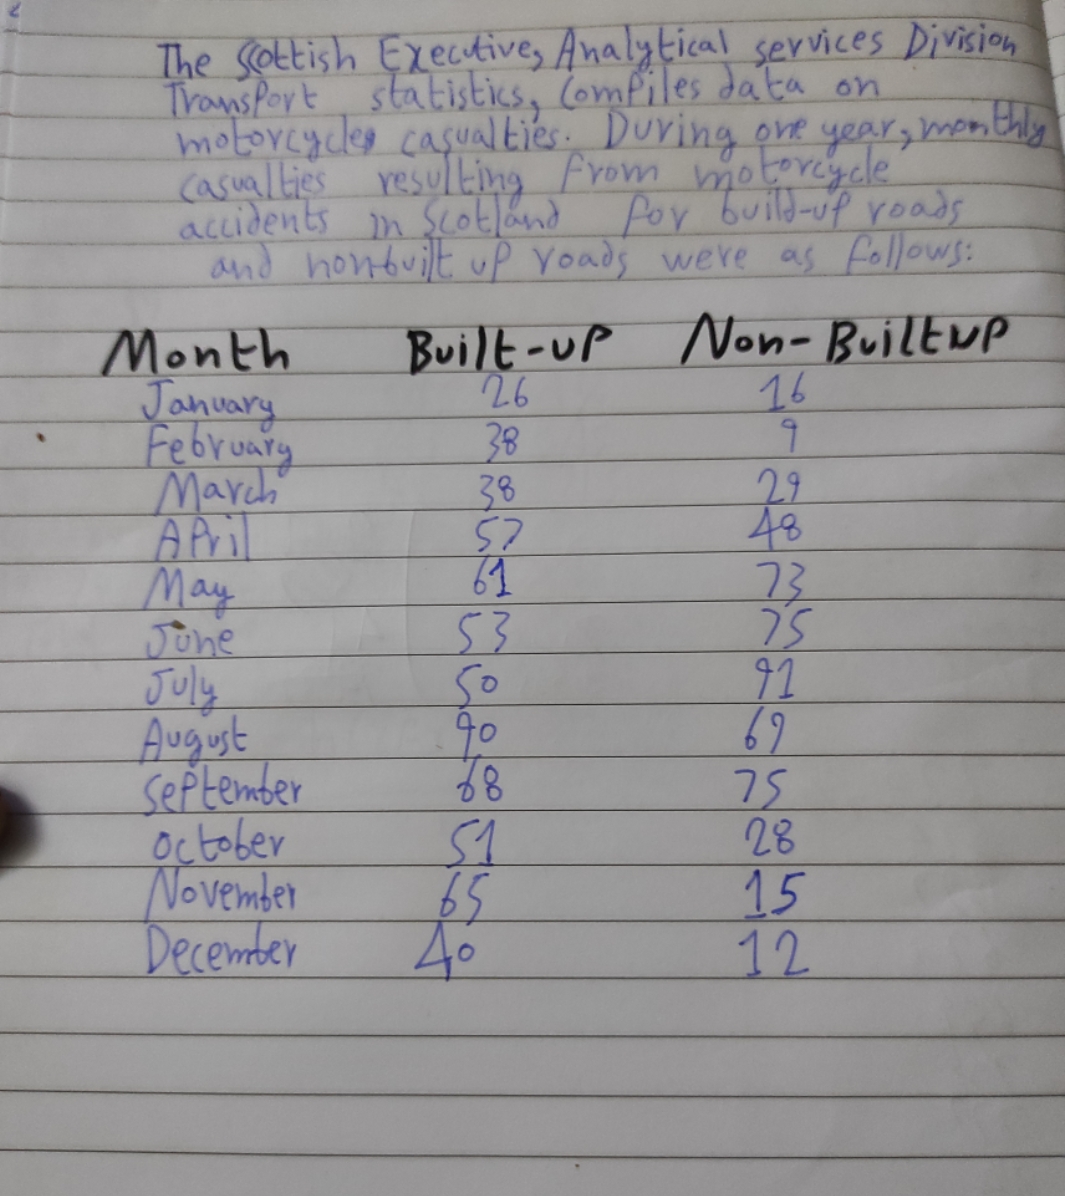 The Scottish Executive, Analytical services Division
Transport statistics, compiles data on
motorcycles casualties. During one year, monthly
casualties resulting from motorcycle
accidents in Scotland for build-up roads
and non-built up roads were as follows:
Month Built-up Non-Builtup
January 26 16
February 38 9
March 38 29
April 57 48
May 61 73
June 53 75
July 50 91
August 90 69
September 68 75
October 51 28
November 65 15
December 40 12